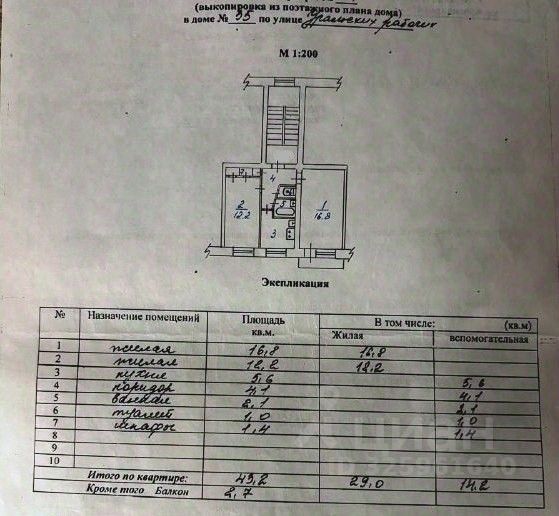 (выкопировка из поэтажного плана дома)
в доме № 35 по улице Уральских рабочих
М 1:200
4
2
12.2
5
1
16.8
3
Экспликация
№ Назначение помещений Площадь кв.м. В том числе: (кв.м)
Жилая вспомогательная
1 жилая 16,8 16,8
2 жилая 12,2 12,2
3 кухня 5,6 5,6
4 коридор 4,1 4,1
5 ванная 2,1 2,1
6 туалет 1,0 1,0
7 шкафы 1,4 1,4
8
9
10
Итого по квартире: 43,2 29,0 14,2
Кроме того Балкон 2,7